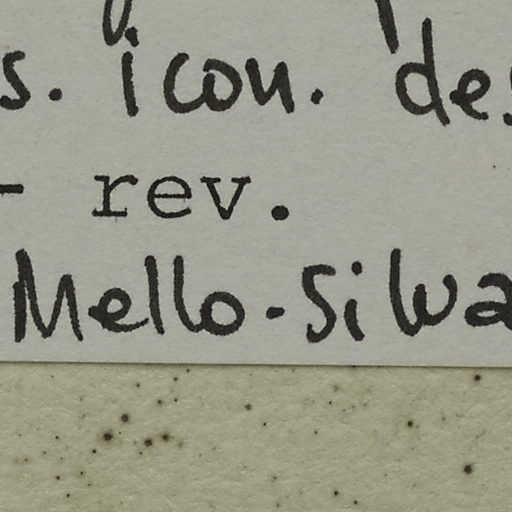 s. icon. des
- rev.
Mello-Silva